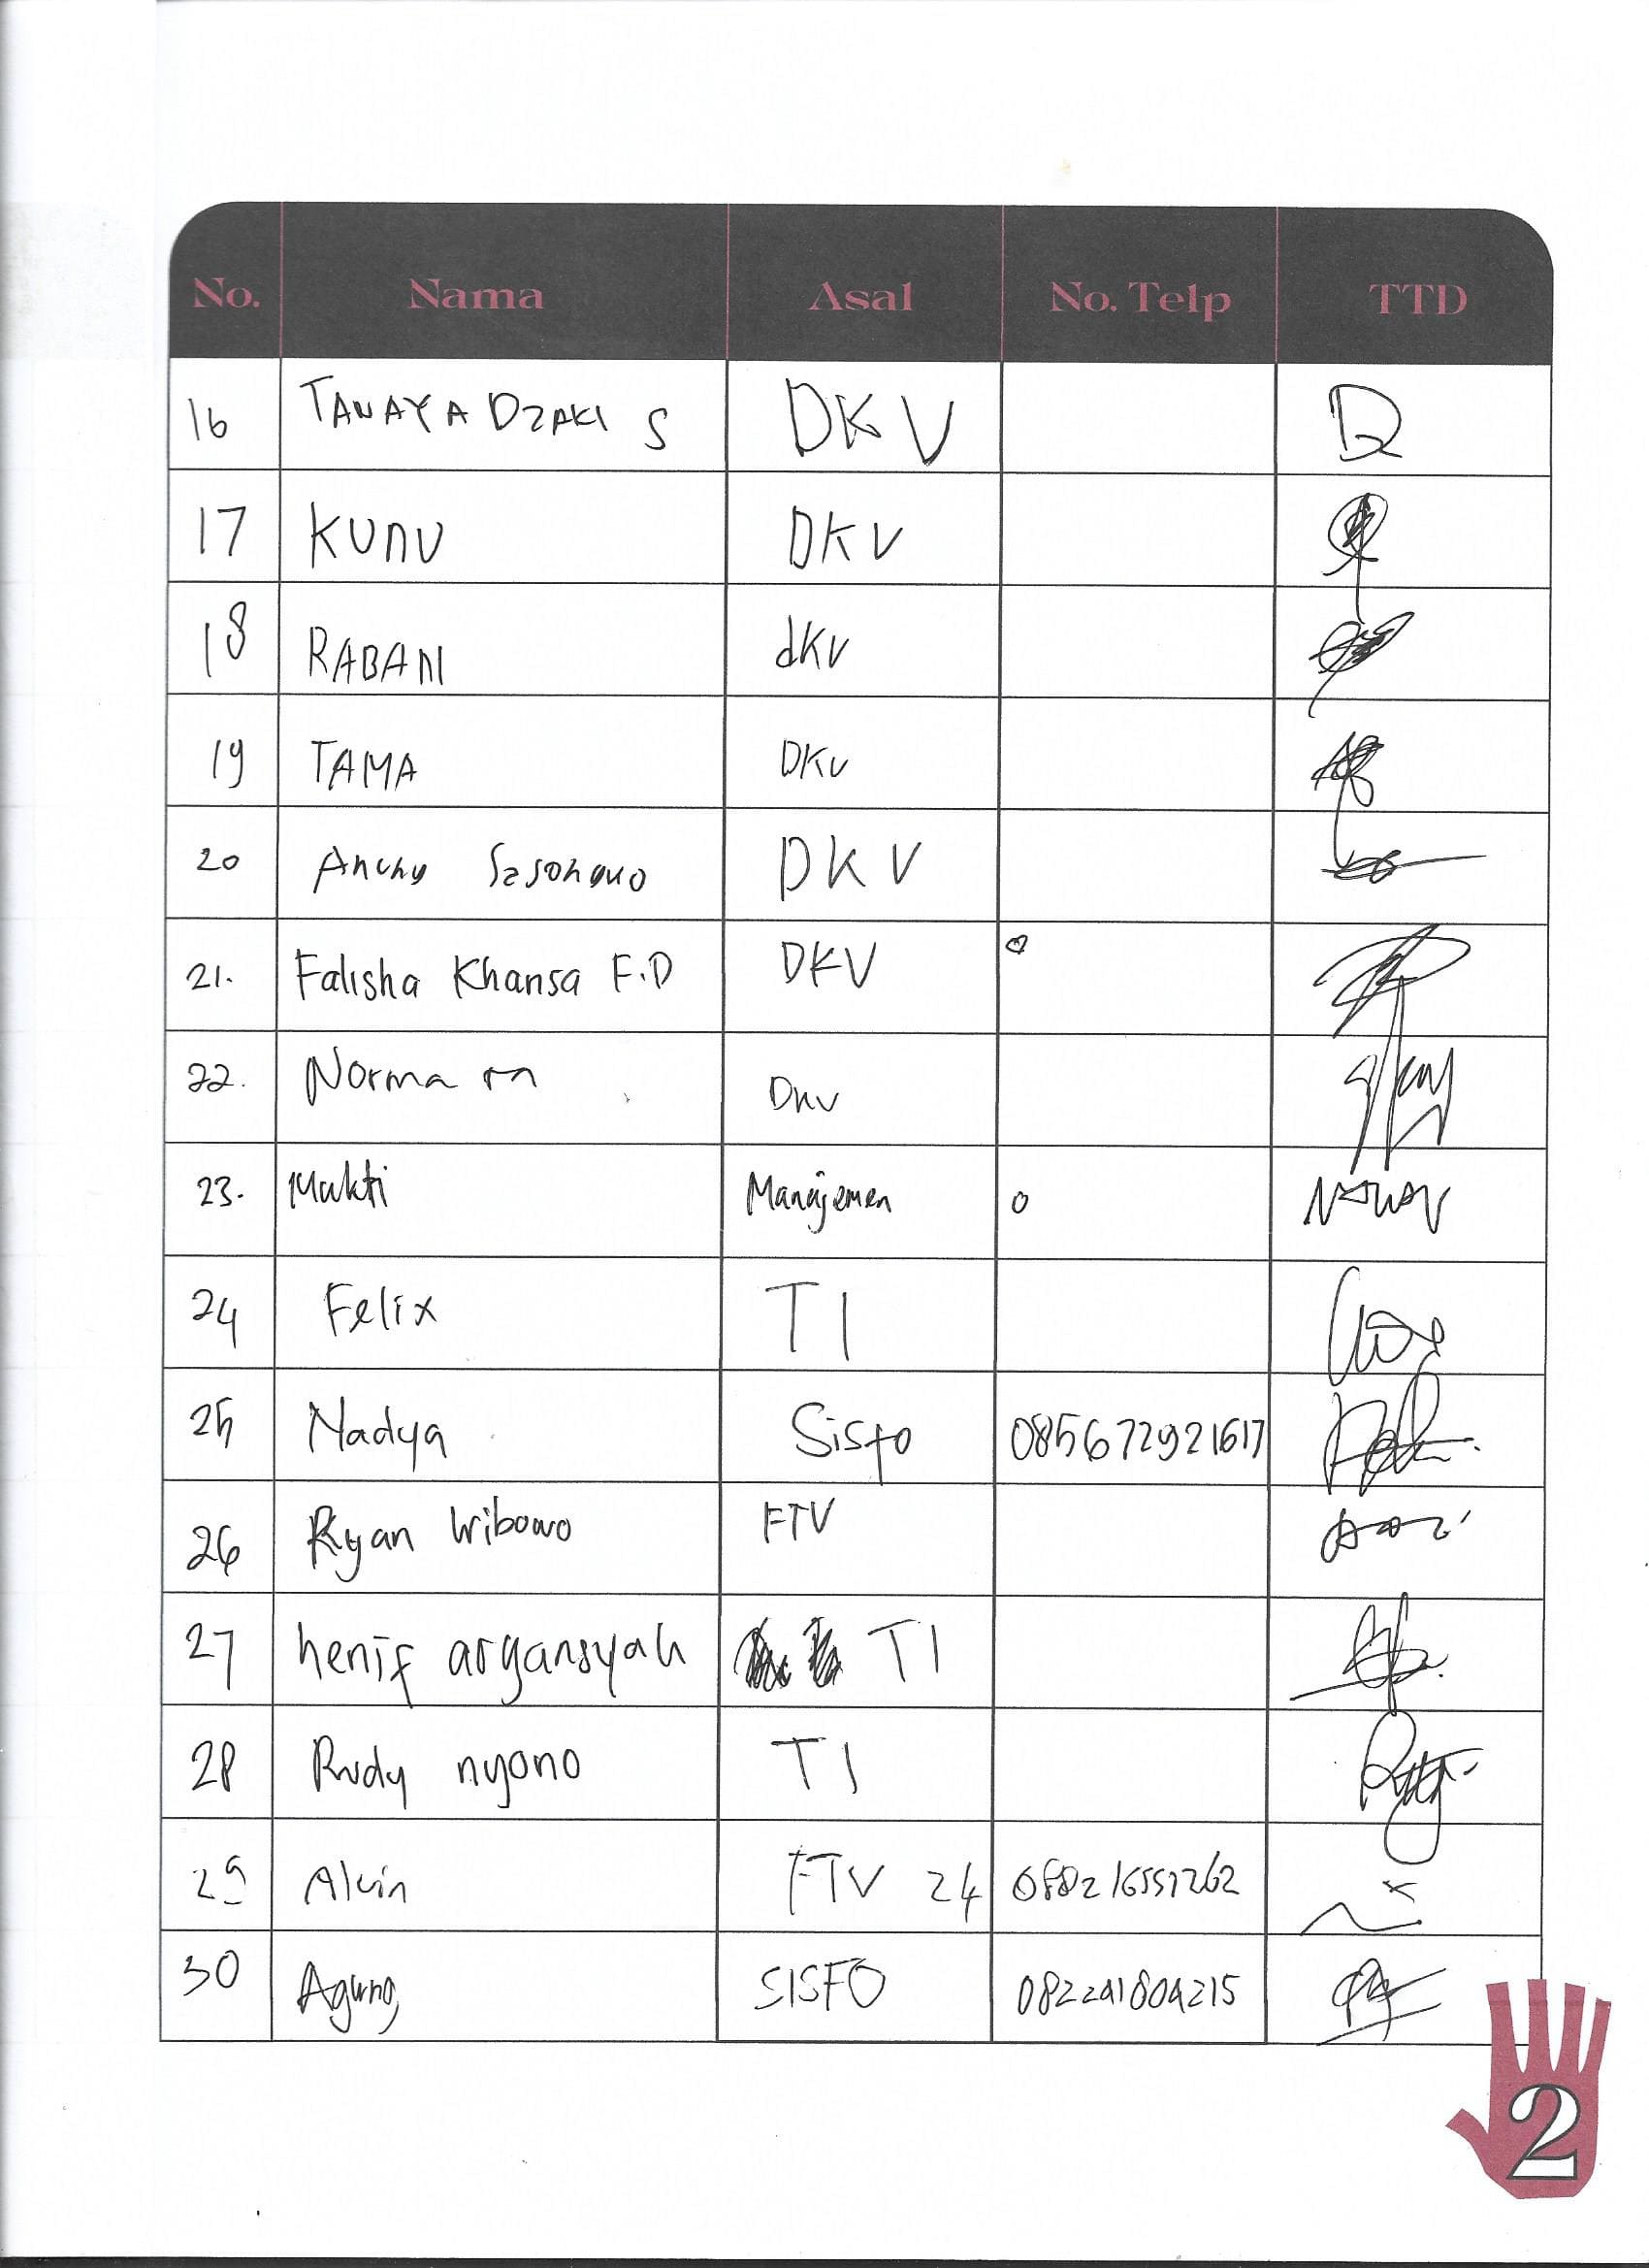 No. Nama Asal No. Telp TTD
16 TANAYA DZAKI S DKV
17 KUNU DKV
18 RABANI dKV
19 TAMA DKV
20 DKV
21. Falisha Khansa F.D DKV
22. Norma m DKV
23. Mukti Manajemen
24 Felix TI
25 Nadya Sisfo 085672921617
26 Ryan Wibowo FTV
27 henif argansyah TI
28 Rudy nyono TI
29 Alvin FTV 24
30 Agung SISFO
2